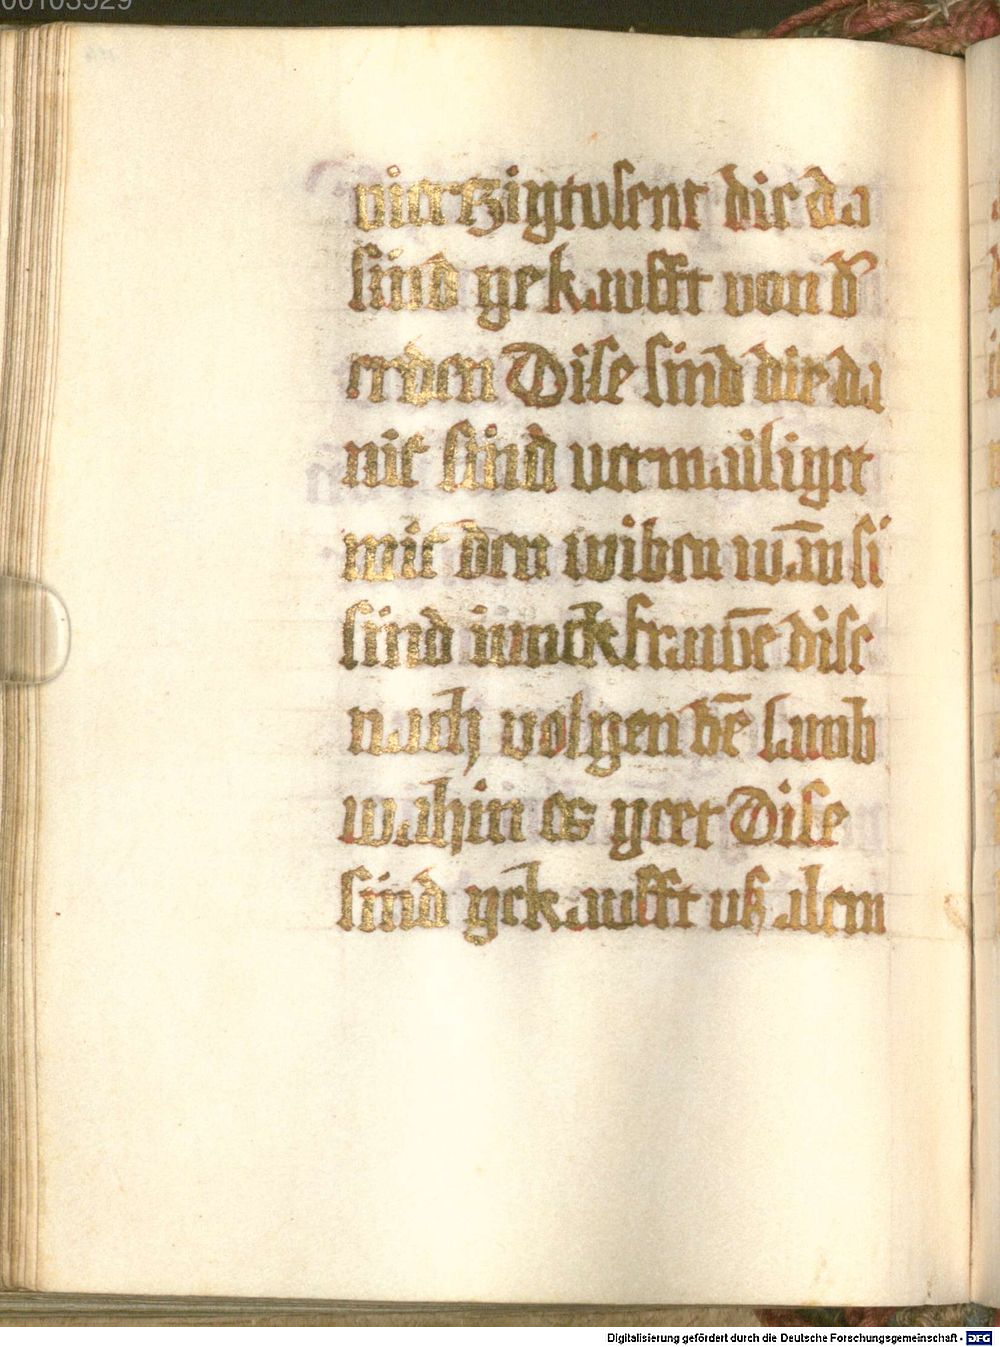 00103529
viertzigtusent die da
sind gekaufft von d̕
erden Dise sind die da
nit sind vermailiget
mit den wiben wān si
sind iunckfrauwē dise
nach volgen dē lamb
wahin es geet Dise
sind gekaufft uß alem
Digitalisierung gefördert durch die Deutsche Forschungsgemeinschaft - DFG